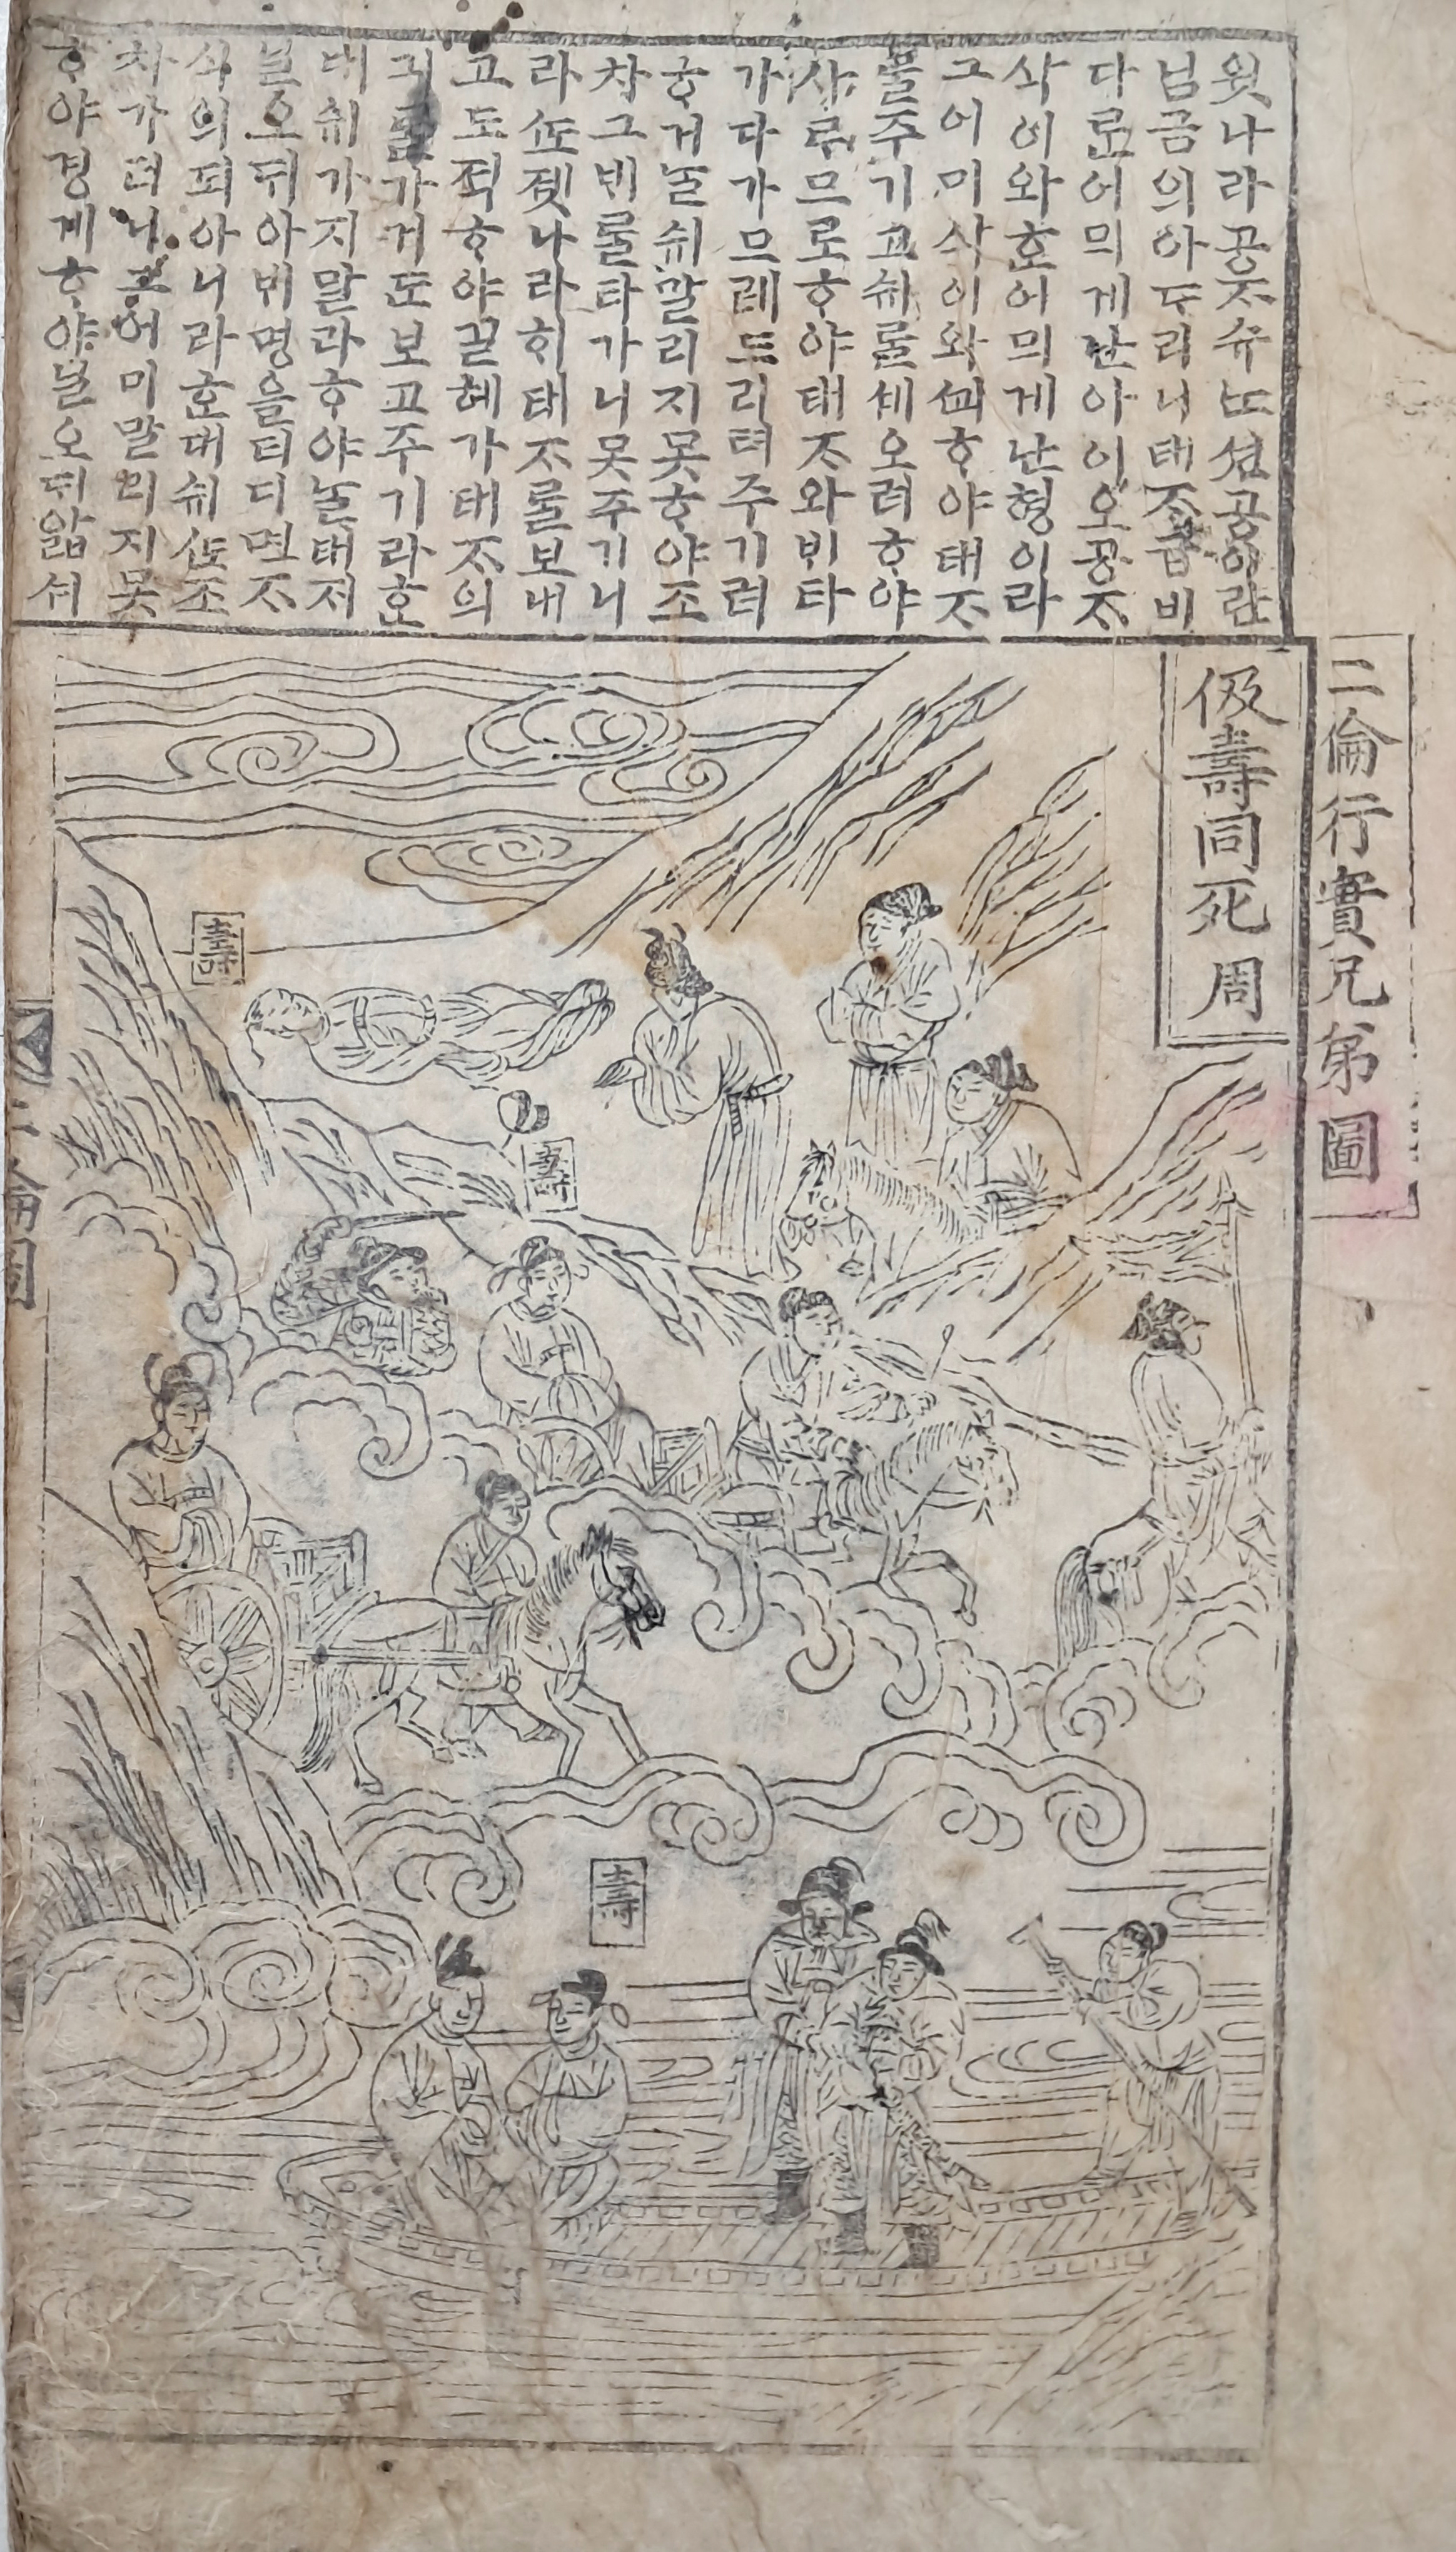 윗나라공ᄌᆞ슈ᄂᆞᆫ션공이란
님금의아ᄃᆞ리니태ᄌᆞ급비
다ᄅᆞᆫ어믜게난아ᄋᆞ오공ᄌᆞ
삭이와ᄒᆞᆫ어믜게난형이라
그어미삭이와ᄭᅬᄒᆞ야태ᄌᆞ
를주기고슈ᄅᆞᆯ셰오려ᄒᆞ야
사ᄅᆞ므로ᄒᆞ야태ᄌᆞ와ᄇᆡ타
가다가므레드리텨주기려
ᄒᆞ거ᄂᆞᆯ슈말리지못ᄒᆞ야조
차그ᄇᆡᄅᆞᆯ타가니못주기니
라ᄯᅩ졧나라히태ᄌᆞᄅᆞᆯ보내
고도적ᄒᆞ야길헤가태ᄌᆞ의
긔ᄅᆞᆯ가거든보고주기라ᄒᆞᆫ
대슈가지말라ᄒᆞ야ᄂᆞᆯ태ᄌᆡ
닐오ᄃᆡ아ᄇᆡ명을더디면ᄌᆞ
식의되아니라ᄒᆞᆫ대슈ᄯᅩ조
차가더니그어미말리지못
ᄒᆞ야경계ᄒᆞ야닐오ᄃᆡ앏셔
二倫行實兄弟圖
伋壽同死 周
壽
壽
壽
二倫圖